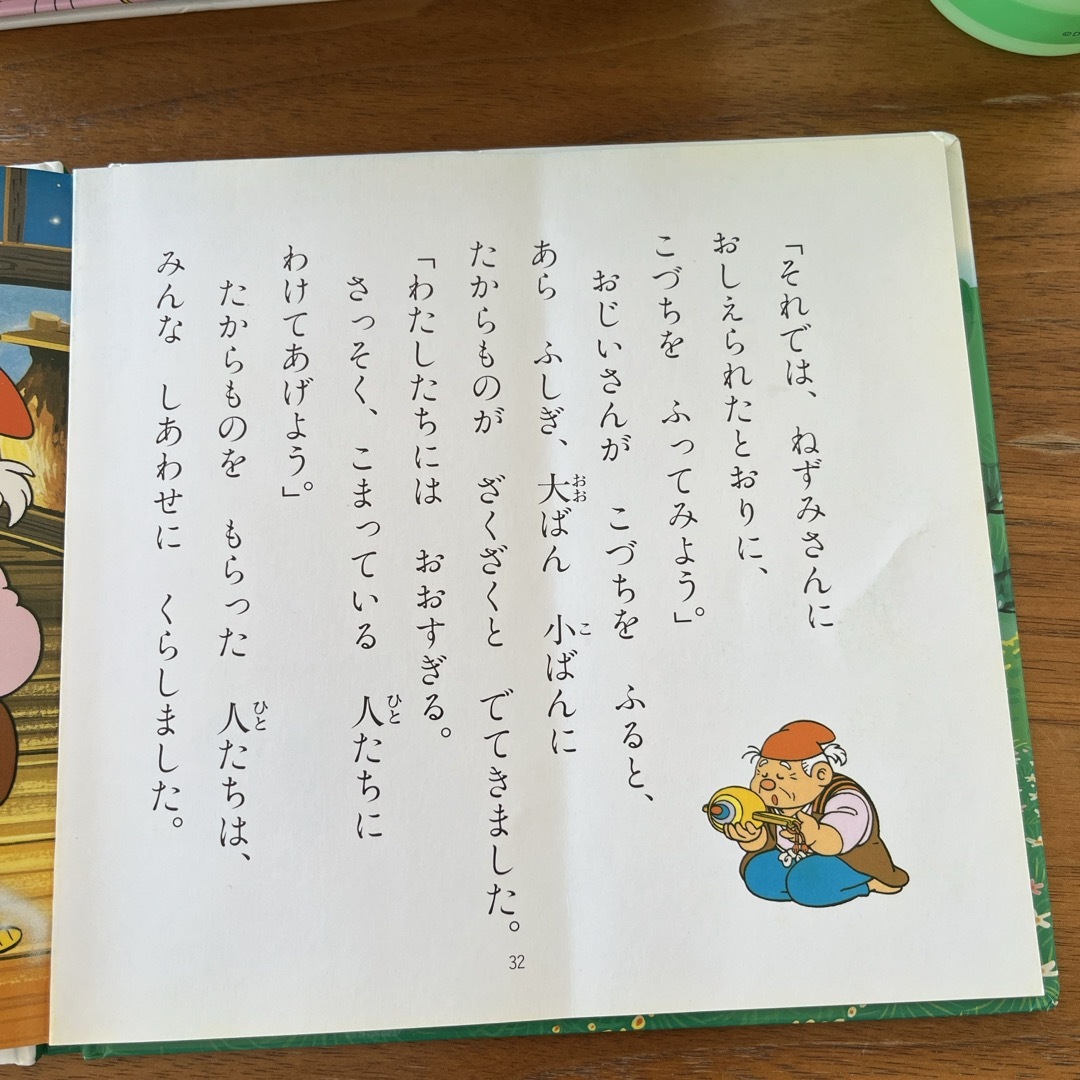 「それでは、 ねずみさんに
おしえられたとおりに、
こづちを ふってみよう。」
おじいさんが こづちを ふると、
あら ふしぎ、 大ばん 小ばんに
たからものが ざくざくと でてきました。
「わたしたちには おおすぎる。
さっそく、 こまっている 人たちに
わけてあげよう。」
たからものを もらった 人たちは、
みんな しあわせに くらしました。
32